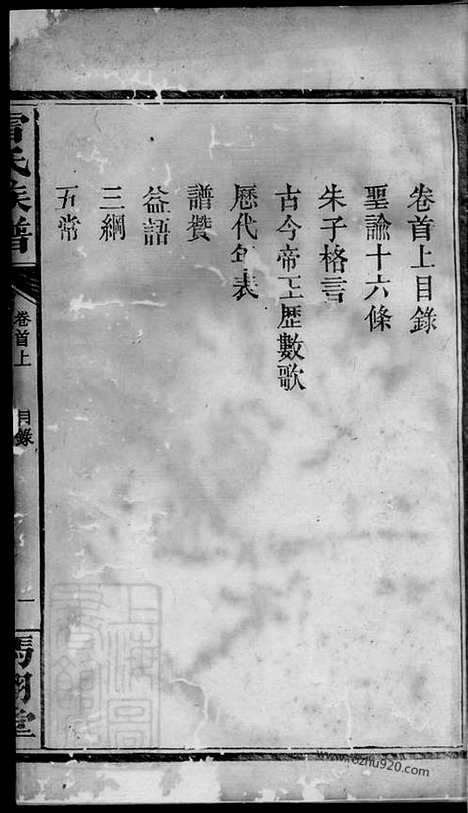 卷首上目錄
聖諭十六條
朱子格言
古今帝王歷數歌
歷代年表
譜贊
益語
三綱
五常
氏族譜
卷首上
目錄
一
堂
www.ozhu920.com